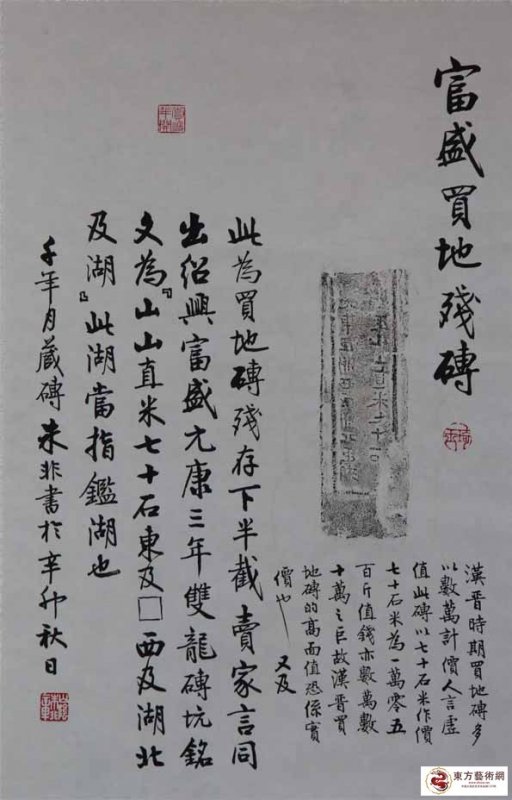 富盛買地殘磚
此為買地磚殘存下半截賣家言同
出紹興富盛元康三年雙龍磚坑銘
文為『山山直米七十石東及□西及湖北
及湖』此湖當指鑑湖也
千年月藏磚朱非書於辛卯秋日
漢晉時期買地磚多
以數萬計價人言虛
值此磚以七十石米作價
七十石米為一萬零五
百斤值錢亦數萬數
十萬之巨故漢晉買
地磚的高面值恐係實
價也 又及
東方藝術網